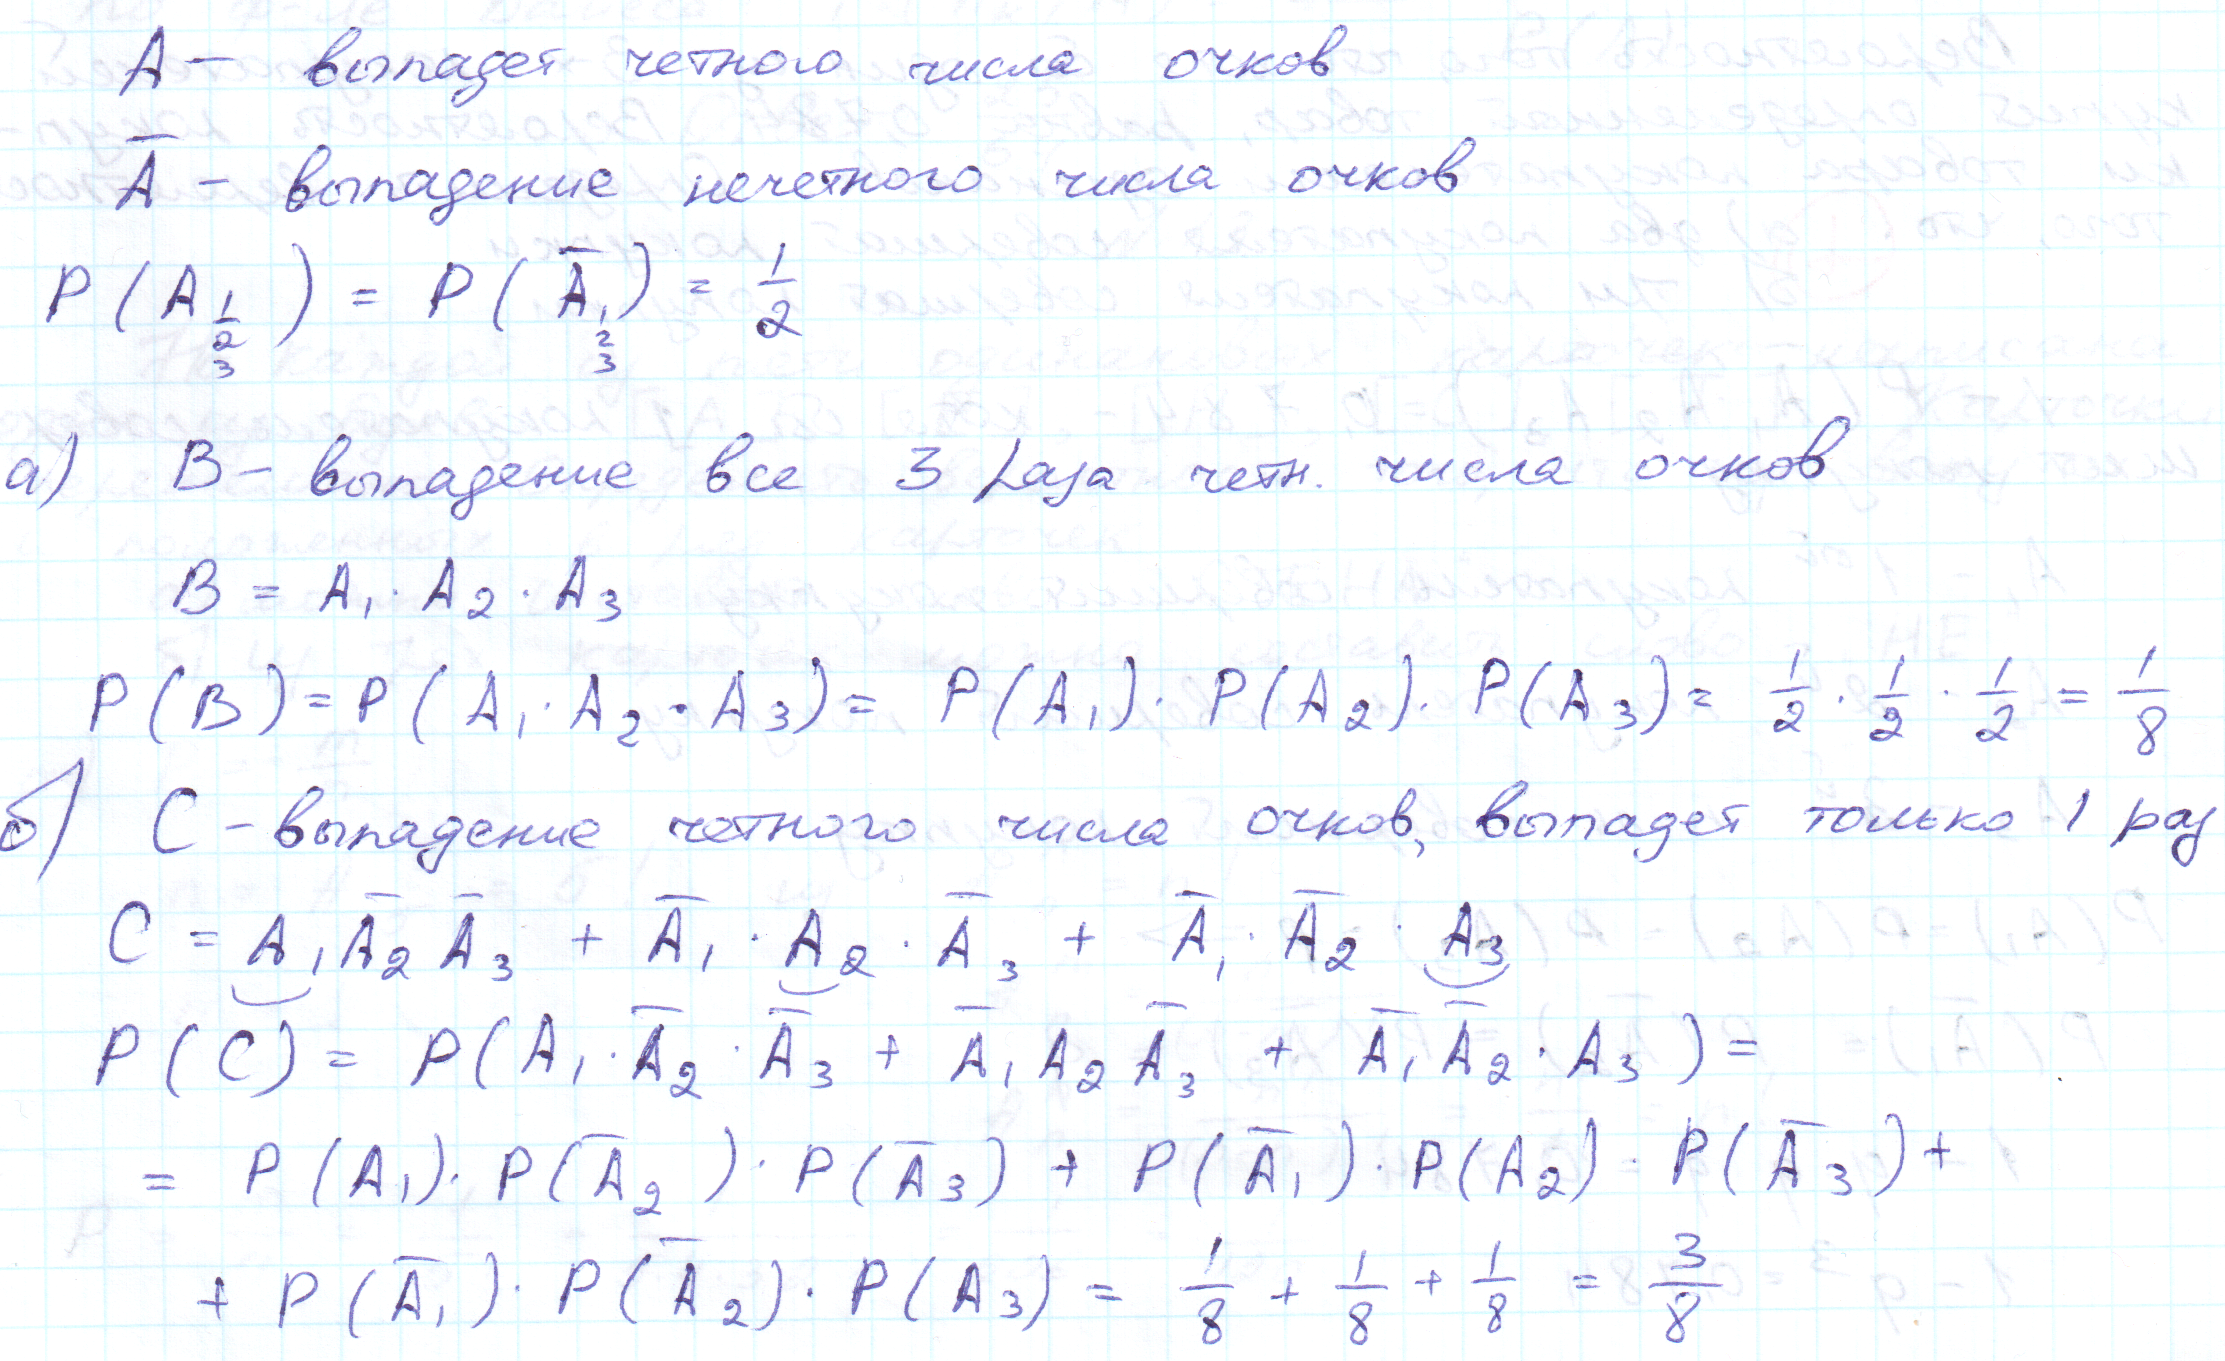 A – выпадет четного числа очков
A̅ – выпадение нечетного числа очков
P(A₁ ₂ ₃) = P(A̅₁ ₂ ₃) = 1/2
а) B – выпадение все 3 раза четн. числа очков
B = A₁ · A₂ · A₃
P(B) = P(A₁ · A₂ · A₃) = P(A₁) · P(A₂) · P(A₃) = 1/2 · 1/2 · 1/2 = 1/8
б) C – выпадение четного числа очков, выпадет только 1 раз
C = A₁ A̅₂ A̅₃ + A̅₁ · A₂ · A̅₃ + A̅₁ · A̅₂ · A₃
P(C) = P(A₁ · A̅₂ · A̅₃ + A̅₁ A₂ A̅₃ + A̅₁ A̅₂ · A₃) =
= P(A₁) · P(A̅₂) · P(A̅₃) + P(A̅₁) · P(A₂) · P(A̅₃) +
+ P(A̅₁) · P(A̅₂) · P(A₃) = 1/8 + 1/8 + 1/8 = 3/8